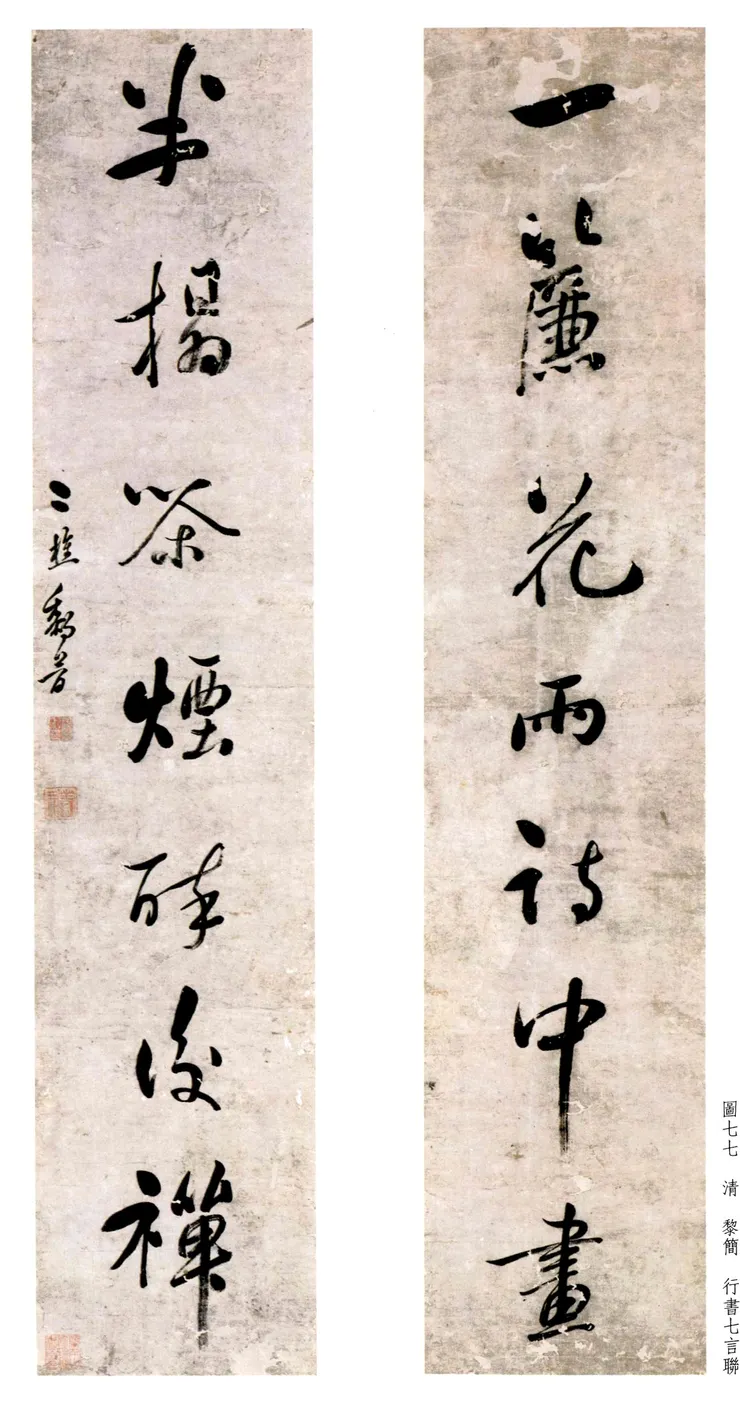 一簾花雨詩中畫
半榻茶煙醉後禪
二樵黎簡
圖七七　清　黎簡　行書七言聯